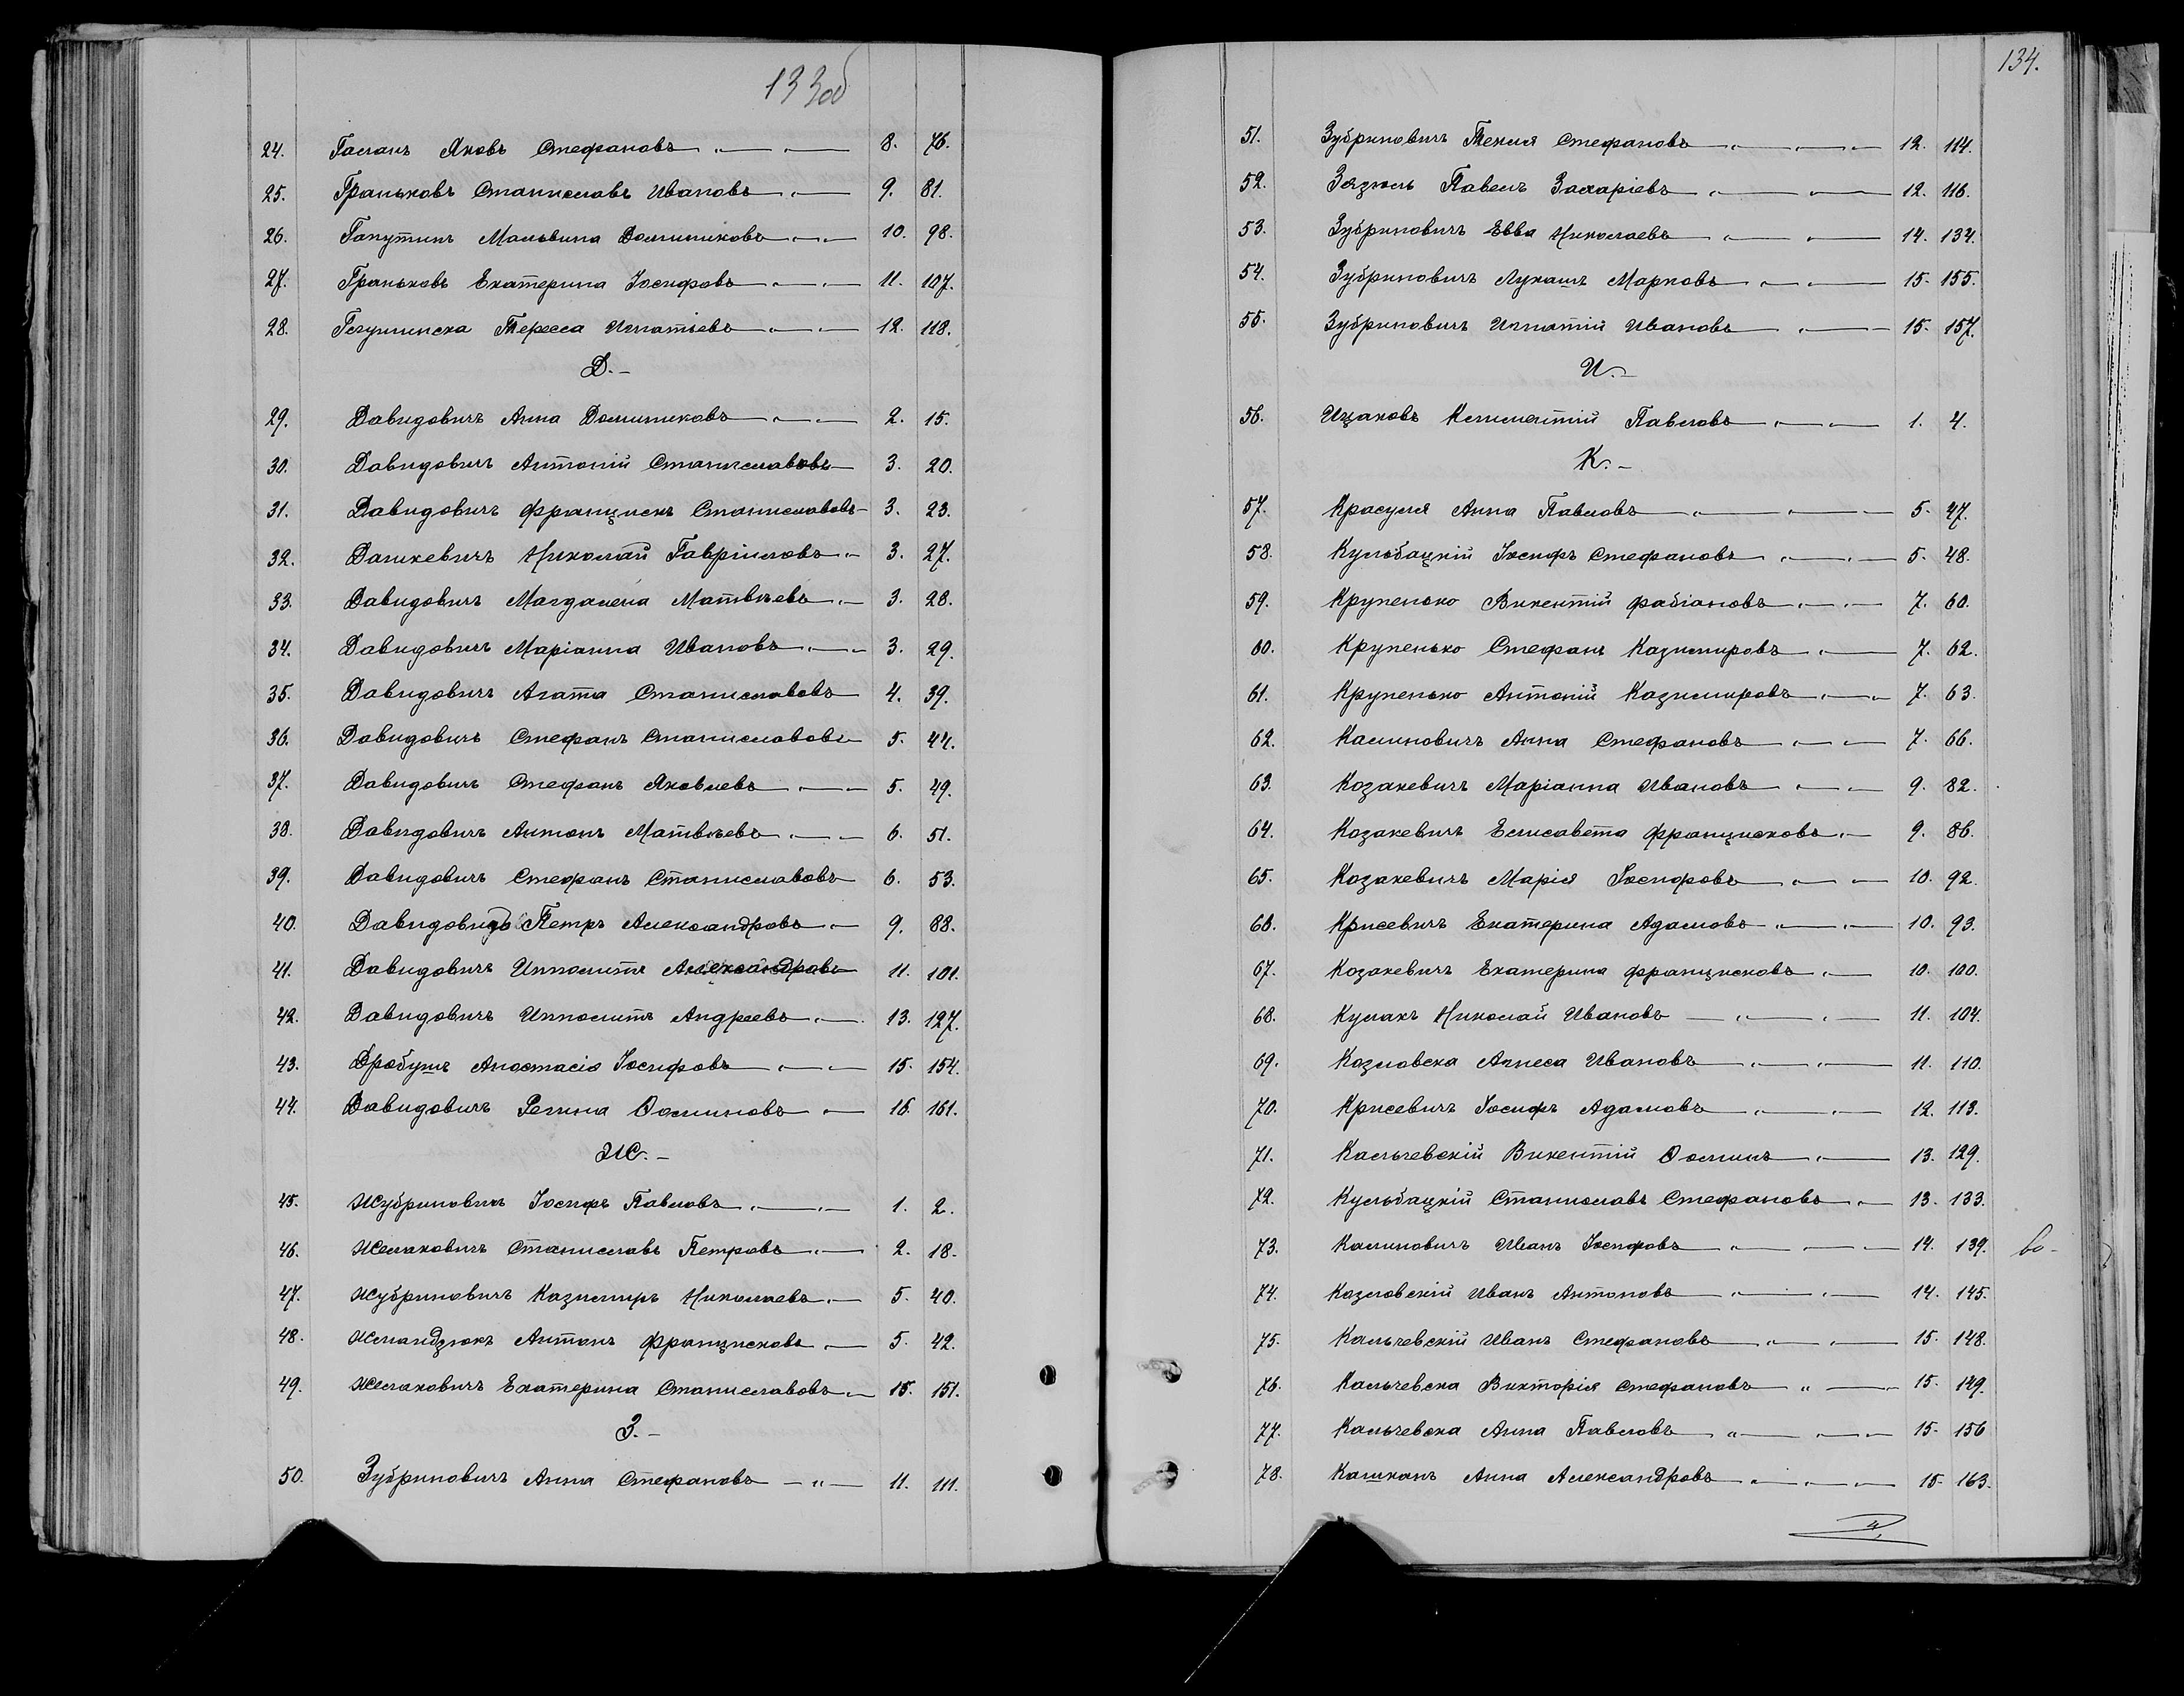 133об
24. Гаманъ Яковъ Стефановъ 8. 76.
25. Граньковъ Станиславъ Ивановъ 9. 81.
26. Гапутинъ Мальвина Доминиковъ 10. 98.
27. Граньковъ Екатерина Іосифовъ 11. 107.
28. Тересса Игнатьевъ 12. 118.
Д.-
29. Давидовичъ Анна Доминиковъ 2. 15.
30. Давидовичъ Антоній Станиславовъ 3. 20.
31. Давидовичъ Францискъ Станиславовъ 3. 23.
32. Дашкевичъ Николай Гавріиловъ 3. 27.
33. Давидовичъ Магдалена Матвѣевъ 3. 28.
34. Давидовичъ Маріанна Ивановъ 3. 29.
35. Давидовичъ Агата Станиславовъ 4. 39.
36. Давидовичъ Стефанъ Станиславовъ 5. 44.
37. Давидовичъ Стефанъ Яковлевъ 5. 49.
38. Давидовичъ Антонъ Матвѣевъ 6. 51.
39. Давидовичъ Стефанъ Станиславовъ 6. 53.
40. Давидовичъ Петръ Александровъ 9. 88.
41. Давидовичъ Ипполитъ Александровъ 11. 101.
42. Давидовичъ Ипполитъ Андреевъ 13. 127.
43. Дробушъ Анастасія Іосифовъ 15. 154.
44. Давидовичъ Регина Осиповъ 16. 161.
Ж.-
45. Жубриновичъ Іосифъ Павловъ 1. 2.
46. Жемаховичъ Станиславъ Петровъ 2. 18.
47. Жубриновичъ Казимиръ Николаевъ 5. 40.
48. Жмандзюкъ Антонъ Францисковъ 5. 42.
49. Жемаховичъ Екатерина Станиславовъ 15. 151.
З.-
50. Зубриновичъ Анна Стефановъ 11. 111.
134.
51. Зубриновичъ Текля Стефановъ 12. 114.
52. Зязюль Павелъ Захаріевъ 12. 116.
53. Зубриновичъ Евва Николаевъ 14. 134.
54. Зубриновичъ Лукашъ Марковъ 15. 155.
55. Зубриновичъ Игнатій Ивановъ 15. 157.
И.-
56. Ицаковъ Климентій Павловъ 1. 4.
К.-
57. Красуля Анна Павловъ 5. 47.
58. Кульбацкій Іосифъ Стефановъ 5. 48.
59. Крупенько Викентій Фабіановъ 7. 60.
60. Крупенько Стефанъ Казимировъ 7. 62.
61. Крупенько Антоній Казимировъ 7. 63.
62. Калиновичъ Анна Стефановъ 7. 66.
63. Козакевичъ Маріанна Ивановъ 9. 82.
64. Козакевичъ Елисавета Францисковъ 9. 86.
65. Козакевичъ Марія Іосифовъ 10. 92.
66. Крисевичъ Екатерина Адамовъ 10. 93.
67. Козакевичъ Екатерина Францисковъ 10. 100.
68. Кулакъ Николай Ивановъ 11. 104.
69. Козловска Агнеса Ивановъ 11. 110.
70. Крисевичъ Іосифъ Адамовъ 12. 113.
71. Кальчевскій Викентій Осипъ 13. 129.
72. Кульбацкій Станиславъ Стефановъ 13. 133.
73. Калиновичъ Иванъ Іосифовъ 14. 139. во-
74. Козловскій Иванъ Антоновъ 14. 145.
75. Кальчевскій Иванъ Стефановъ 15. 148.
76. Кальчевска Викторія Стефановъ 15. 149.
77. Кальчевска Анна Павловъ 15. 156
78. Кашканъ Анна Александровъ 15. 163.